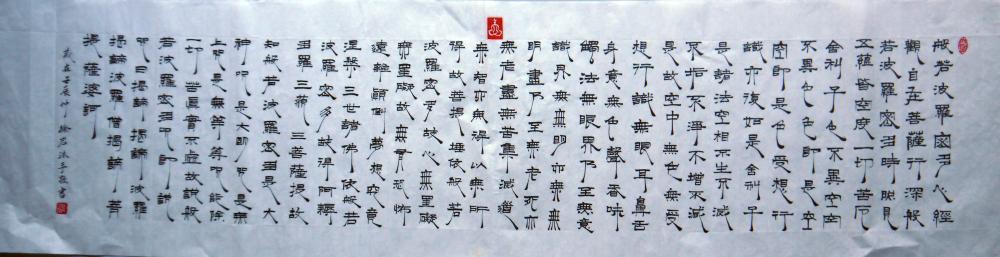 般若波羅蜜多心經
觀自在菩薩行深般
若波羅蜜多時照見
五蘊皆空度一切苦厄
舍利子色不異空空
不異色色即是空
空即是色受想行
識亦復如是舍利子
是諸法空相不生不滅
不垢不淨不增不減
是故空中無色無受
想行識無眼耳鼻舌
身意無色聲香味
觸法無眼界乃至無意
識界無無明亦無無
明盡乃至無老死亦
無老盡無苦集滅道
無智亦無得以無所
得故菩提埵依般若
波羅蜜多故心無罣礙
無罣礙故無有恐怖
遠離顛倒夢想究竟
涅槃三世諸佛依般若
波羅蜜多故得阿耨
多羅三藐三菩提故
知般若波羅蜜多是大
神咒是大明咒是無
上咒是無等等咒能除
一切苦真實不虛故說般
若波羅蜜多咒即說
咒曰揭諦揭諦波羅
揭諦波羅僧揭諦菩
提薩婆訶
歲在壬辰仲